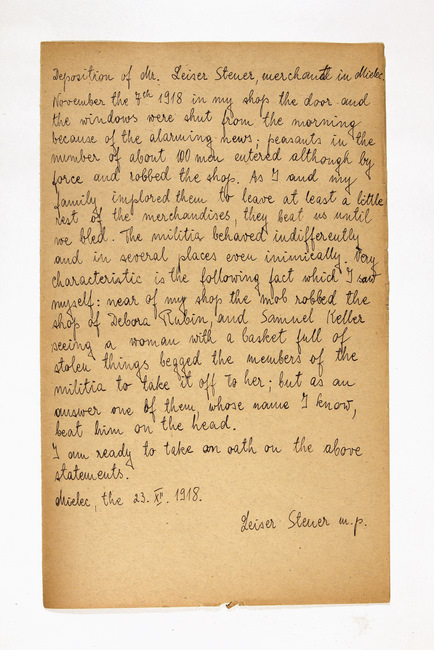 Deposition of Mr. Leiser Steuer, merchant in Mielec.
November the 7th 1918 in my shop the door and
the windows were shut from the morning
because of the alarming news; peasants in the
number of about 100 men entered although by
force and robbed the shop. As I and my
family implored them to leave at least a little
rest of the merchandises, they beat us until
we bled. The militia behaved indifferently
and in several places even inimically. Very
characteristic is the following fact which I saw
myself: near of my shop the mob robbed the
shop of Debora Rubin, and Samuel Keller
seeing a woman with a basket full of
stolen things begged the members of the
militia to take it off to her; but as an
answer one of them, whose name I know,
beat him on the head.
I am ready to take an oath on the above
statements.
Mielec, the 23. XII. 1918.
Leiser Steuer m.p.